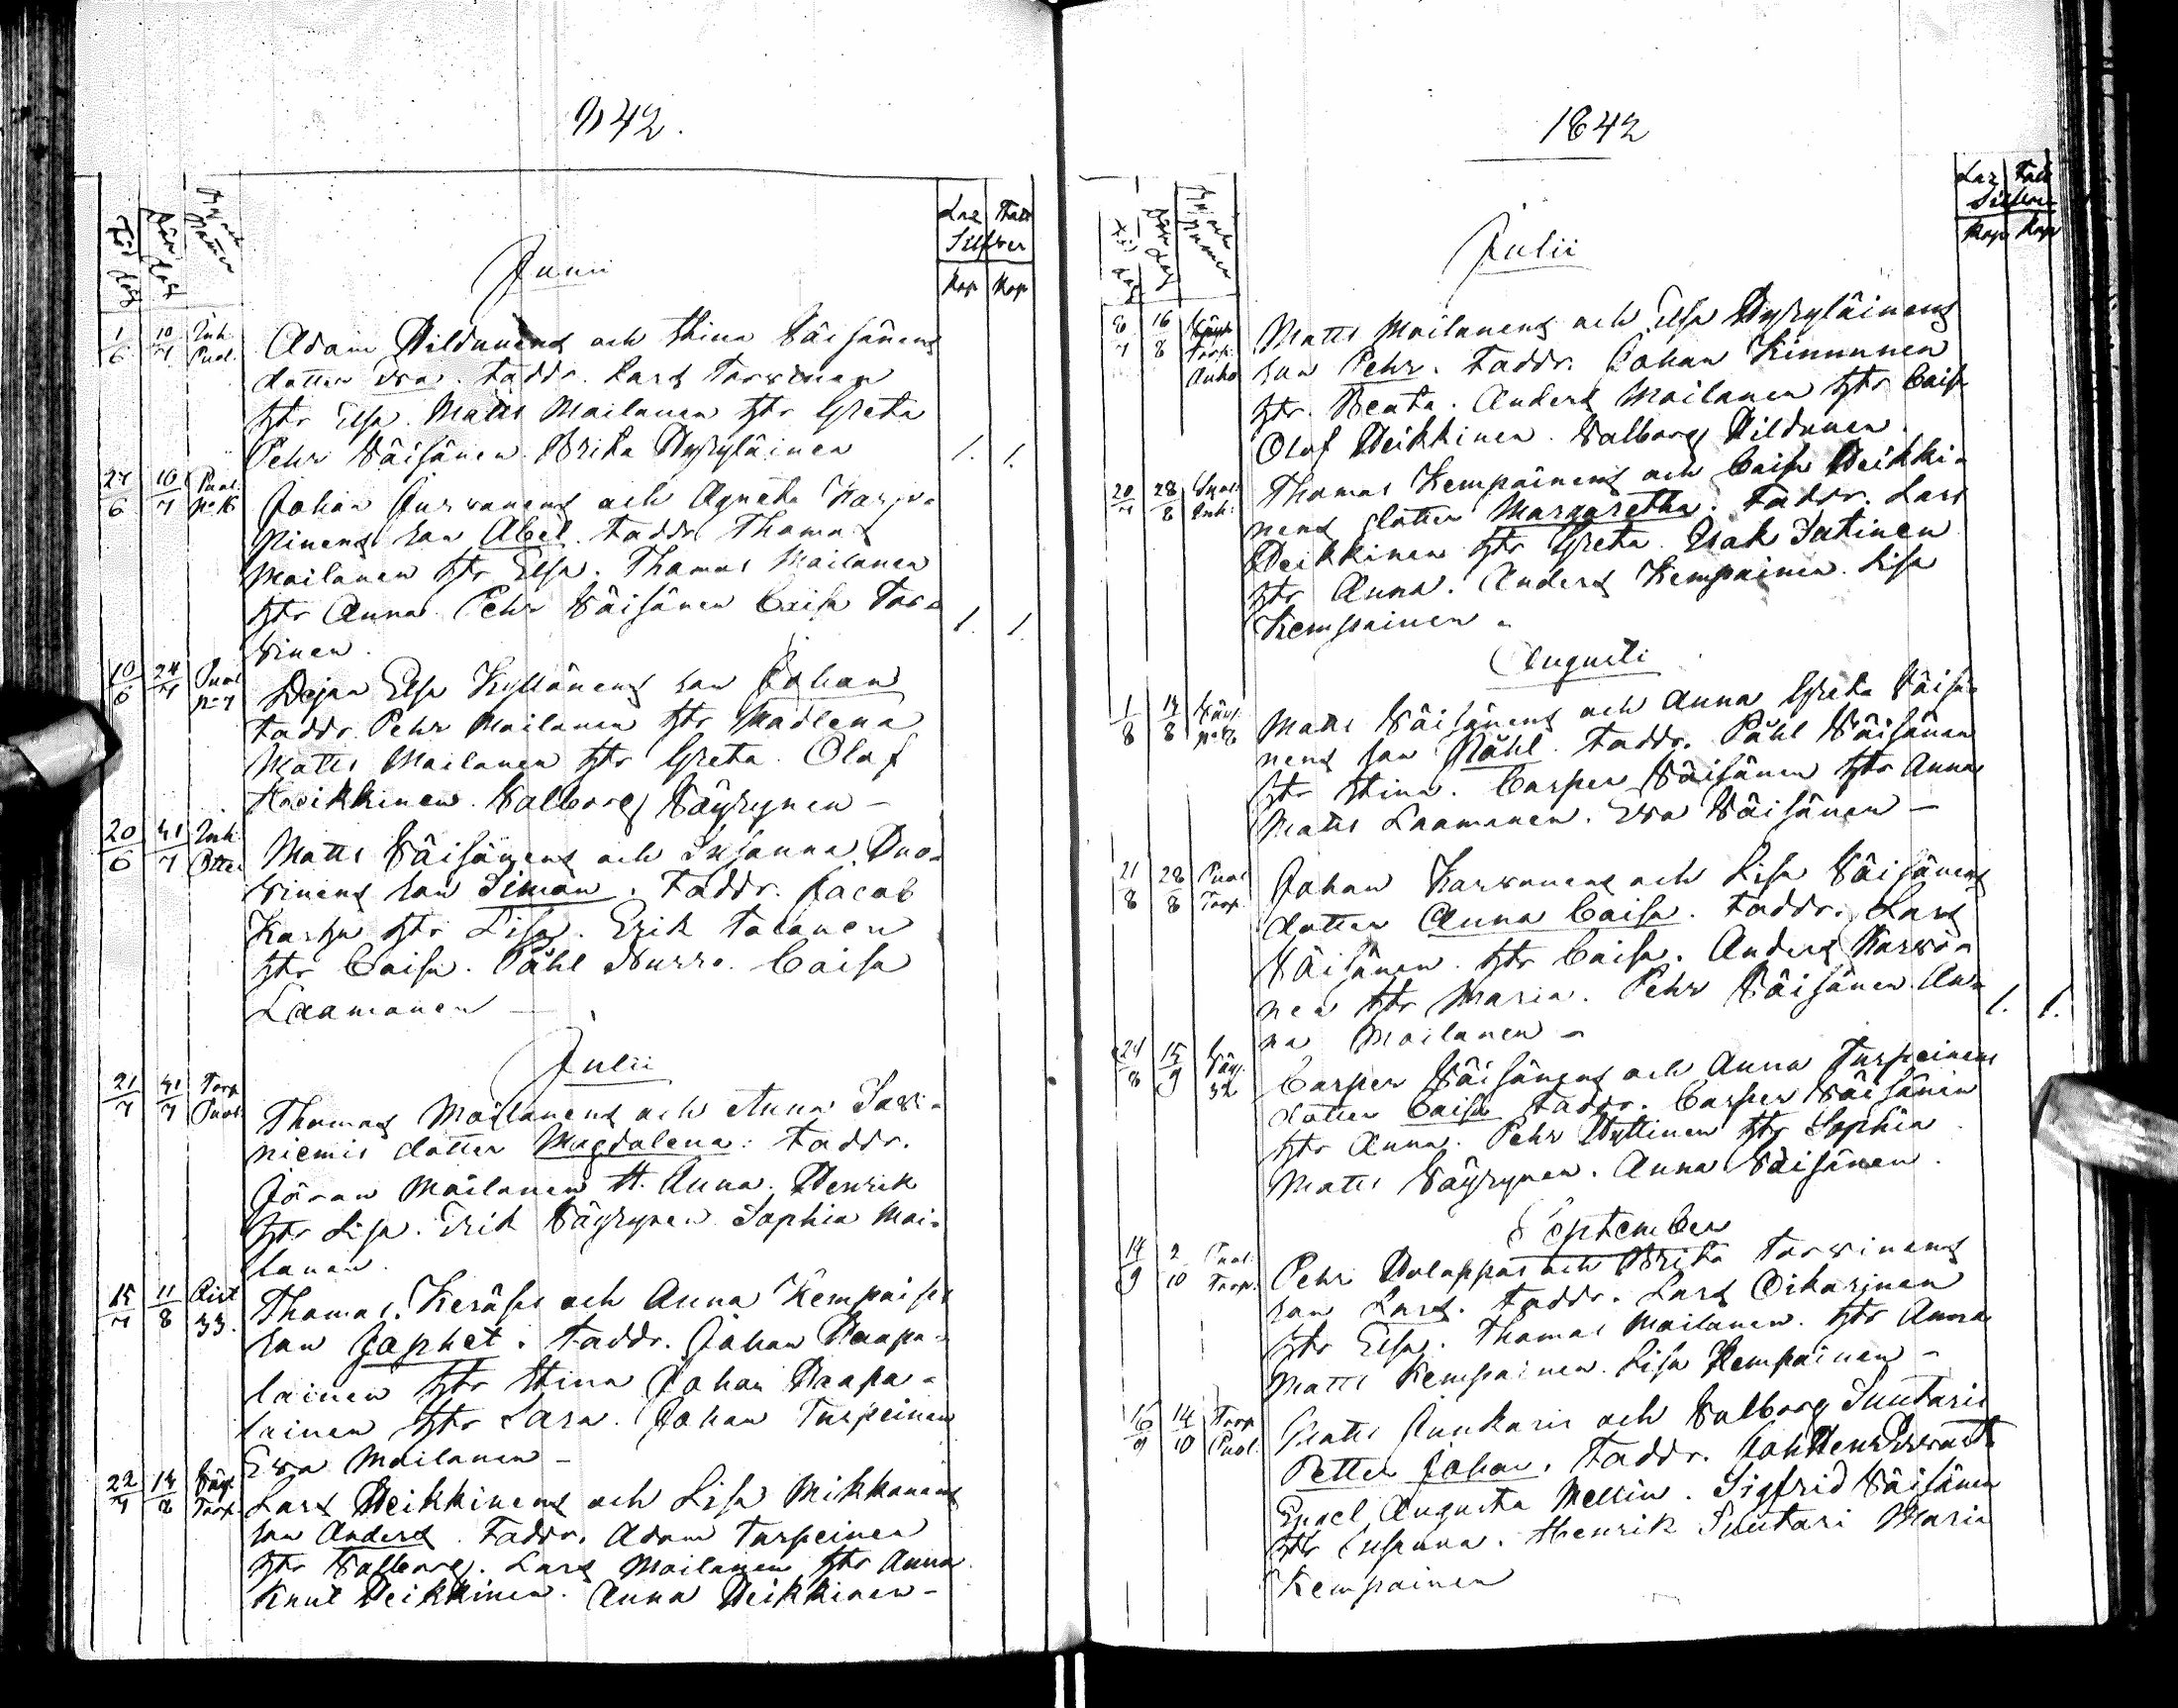 1842.
Föd. dag
Döp. dag
By och Numer
Laz Fatt
Silfwer
Kop Kop
Junii
1/6 10/7 Inh. Puol. Adam Hildunens och Stina Wäisänens
dotter Eva. Faddr. Lars Torvinen
hstr Elsa. Matts Moilanen hstr Greta
Pehr Wäisänen. Brita Hyryläinen 1. 1.
27/6 10/7 Puol. No 16 Johan Jurvanens och Agneta Karp-
pinens son Abel. Faddr Thomas
Moilanen hstr Elsa. Thomas Moilanen
hstr Anna. Pehr Wäisänen Caisa Tor-
vinen. 1. 1.
10/6 24/7 Puol No 7 Pigan Elsa Kyllönens son Johan
Faddr. Pehr Moilanen hstr Madlena
Matts Moilanen hstr Greta. Olof
Heikkinen. Walborg Wäyrynen -
20/6 31/7 Inh. Matts Wäisänens och Susanna Duo-
vinens son Simon. Faddr. Jacob
hstr Lisa. Erik Tolonen
hstr Caisa. Påhl Nurro. Caisa
Laamanen -
Julii
21/7 31/7 Torp Puol. Thomas Moilanens och Anna Savi-
niemis dotter Magdalena. Faddr.
Jöran Moilanen H. Anna. Henrik
hstr Lisa. Erik Wäyrynen. Sophia Moi-
lanen.
15/7 11/8 Rist 33. Thomas Keräses och Anna Kempaises
son Japhet. Faddr. Johan Haapa-
lainen hstr Stina Johan Haapa-
lainen hstr Sara. Johan Turpeinen
Ewa Moilanen -
22/7 14/8 Wäyr. Torp. Lars Heikkinens och Lisa Mikkonens
son Anders. Faddr. Adam Turpeinen
hstr Walborg. Lars Moilanen hstr Anna
Knut Heikkinen. Anna Heikkinen -
1842
Föd. dag
Döp. dag
By och Numer
Laz Fatt
Silfwer
Kop Kop
Julii
8/7 16/8 Torp. Matts Moilanens och Elsa Hyryläinens
son Pehr. Faddr. Johan Kinnunen
hstr. Beata. Anders Moilanen hstr Caisa
Olof Heikkinen. Walborg Hildunen.
20/7 28/8 Puol. Inh. Thomas Kempainens och Caisa Heikki-
nens dotter Margaretha. Faddr. Lars
Heikkinen hstr Greta. Isak Sutinen
hstr Anna. Anders Kempainen. Lisa
Kempainen -
Augusti
1/8 14/8 Wäyr. No 8 Matts Wäisänens och Anna Greta Wäisä-
nens son Påhl. Faddr. Påhl Wäisänen
hstr Stina. Casper Wäisänen hstr Anna
Matts Laamanen. Eva Wäisänen -
21/8 28/8 Puol Torp. Johan Karvonens och Lisa Wäisänens
dotter Anna Caisa. Faddr. Lars
Wäisänen. hstr Caisa. Anders Karvo-
nen hstr Maria. Pehr Wäisänen An-
na Moilanen - 1. 1.
24/8 15/9 Wäyr. 32 Casper Wäisänens och Anna Turpeinens
dotter Caisa Faddr. Casper Wäisänen
hstr Anna. Pehr Hyttinen hstr Sophia
Matts Wäyrynen. Anna Wäisänen.
September
14/9 2/10 Puol. Torp. Pehr Holappas och Brita Torvinens
son Lars. Faddr. Lars Oikarinen
hstr Elsa. Thomas Moilanen. hstr Anna
Matts Kempainen. Lisa Kempainen -
16/9 14/10 Torp Puol. Matts Junkaris och Walborg Suutaris
Petter Johan. Faddr.
Engel Augusta Mellin. Sigfrid Wäisänen
hstr Susanna. Henrik Suutari Maria
Kempainen